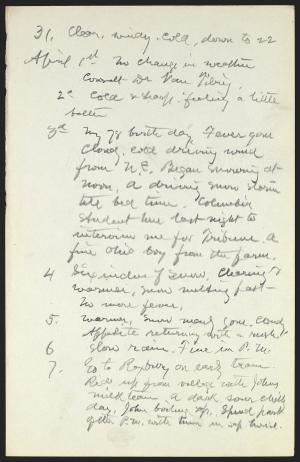 31. Clear, windy, cold, down to 22
April 1st No change in weather
Consult Dr Van
2d Cold & sharp. feeling a little
better
3d My 78 birth day, Fever gone
Cloudy, cold driving wind
from N.E. Began snowing at
noon, a driving snow storm
till bed time. Columbia
student here last night to
interview me for Tribune. A
fine Ohio boy from the farm.
4 Six inches of snow, Clearing &
warmer, snow melting fast -
No more fever,
5. Warmer, snow nearly gone. Cloudy
Appetite returning with a rush.
6 Slow rain. Fine in P.M.
7. Go to Roxbury on early train.
Ride up from village with Johns
milk team. A dark sour chilly
day, John boiling sap. Spend part
of the P.M. with them in sap house.